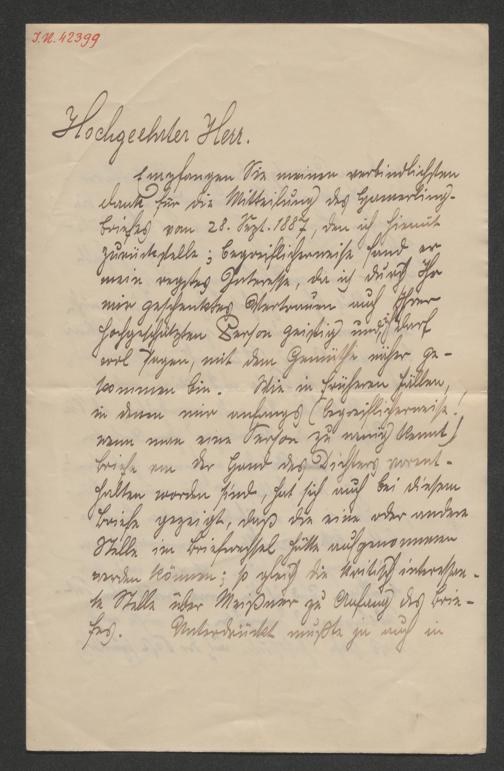 J.N. 42399
Hochgeehrter Herr.
Empfangen Sie meinen verbindlichsten
Dank für die Mitteilung des Hamerling-
briefes vom 28. Sept. 1887, den ich hiemit
zurückstelle; begreiflicherweise fand er
mein regstes Interesse, da ich durch Ihr
mir geschenktes Vertrauen auch Ihrer
hochgeschätzten Person geistig und, ich darf
wol sagen, mit dem Gemüthe näher ge-
kommen bin. Wie in früheren Fällen,
in denen mir anfangs (begreiflicherweise!
wenn man eine Person zu wenig kennt)
Briefe von der Hand des Dichters vorent-
halten worden sind, hat sich auch bei diesem
Briefe gezeigt, daß die eine oder andere
Stelle im Briefwechsel hätte aufgenommen
werden können; so gleich die kritisch interessan-
te Stelle über Meißner zu Anfang des Brie-
fes. Unterdrückt mußte ja auch in